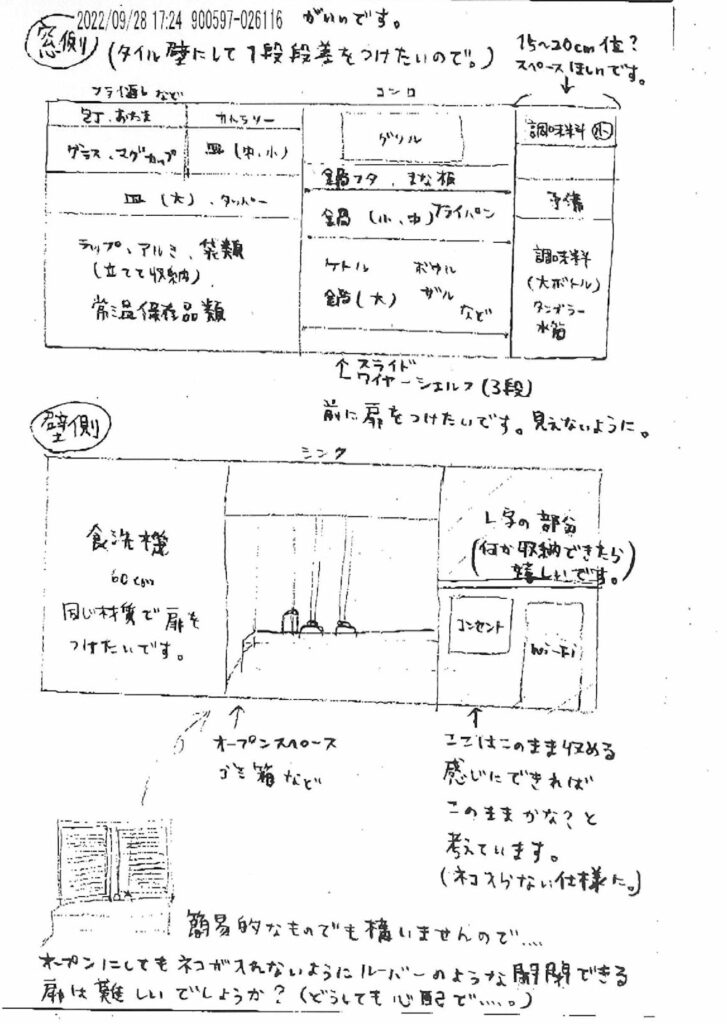 2022/09/28 17:24 900597-026116 がいいです。
窓側
(タイル壁にして1段段差をつけたいので。)
15~20cm位?
スペースほしいです。
フライ返しなど
コンロ
包丁、おたま
カトラリー
グリル
調味料 小
グラス、マグカップ
皿(中、小)
鍋フタ、まな板
皿(大)、タッパー
予備
鍋(小、中)フライパン
ラップ、アルミ、袋類
(立てて収納)
常温保存品類
ケトル ボウル
鍋(大) ザル
など
調味料
(大ボトル)
タンブラー
水筒
↑スライド
ワイヤーシェルフ(3段)
前に扉をつけたいです。見えないように。
壁側
シンク
食洗機
60cm
同じ材質で扉を
つけたいです。
L字の部分
(何か収納できたら
嬉しいです。)
コンセント
Wi-Fi
オープンスペース
ゴミ箱など
ここはこのまま収める
感じにできれば
このままかな?と
考えています。
(ネコ入らない仕様に。)
簡易的なものでも構いませんので....
オープンにしてもネコが入れないようにルーバーのような開閉できる
扉は難しいでしょうか?(どうしても心配で.....。)